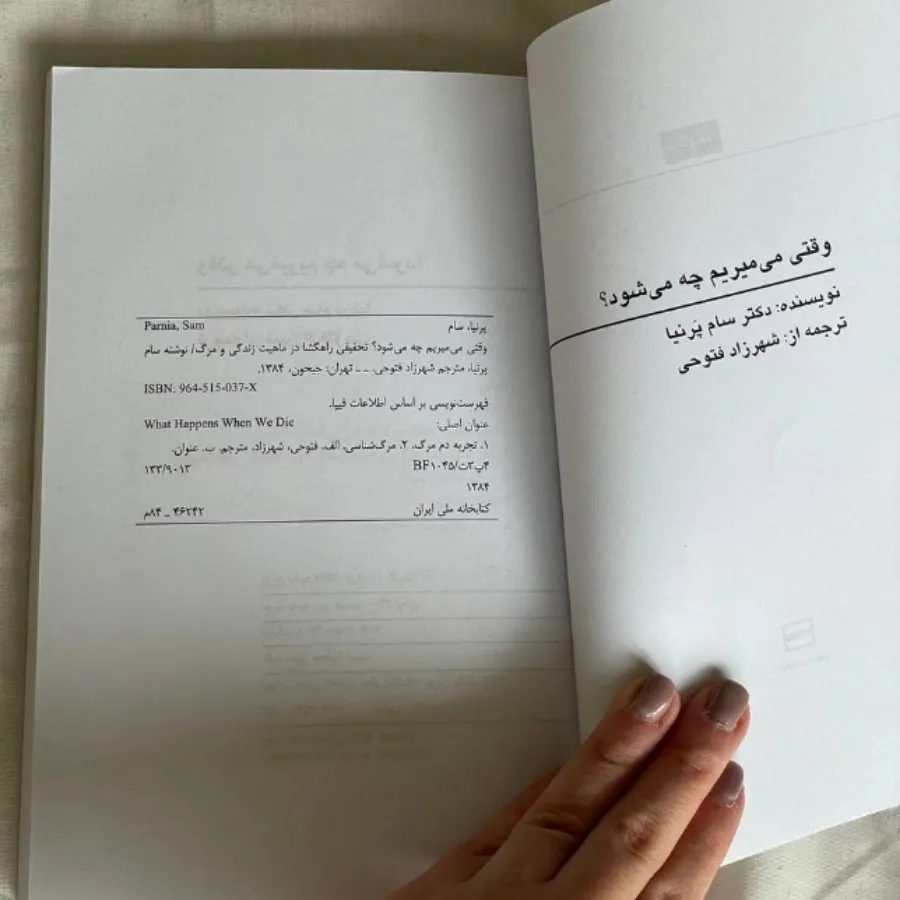 وقتی می‌میریم چه می‌شود؟
نویسنده: دکتر سام پَرنیا
ترجمه از: شهرزاد فتوحی
پرنیا، سام Parnia, Sam
وقتی می‌میریم چه می‌شود؟ تحقیقی راهگشا در ماهیت زندگی و مرگ/ نوشته سام
پرنیا، مترجم شهرزاد فتوحی. ـ ـ تهران: جیحون، ۱۳۸۴.
ISBN: 964-515-037-X
فهرست‌نویسی بر اساس اطلاعات فیپا.
عنوان اصلی: What Happens When We Die
۱. تجربه دم مرگ. ۲. مرگ‌شناسی. الف. فتوحی، شهرزاد، مترجم. ب. عنوان.
۴پ۳ت/BF۱۰۴۵ ۱۳۳/۹۰۱۳
۱۳۸۴
کتابخانه ملی ایران ۴۶۲۴۲ ـ ۸۴م